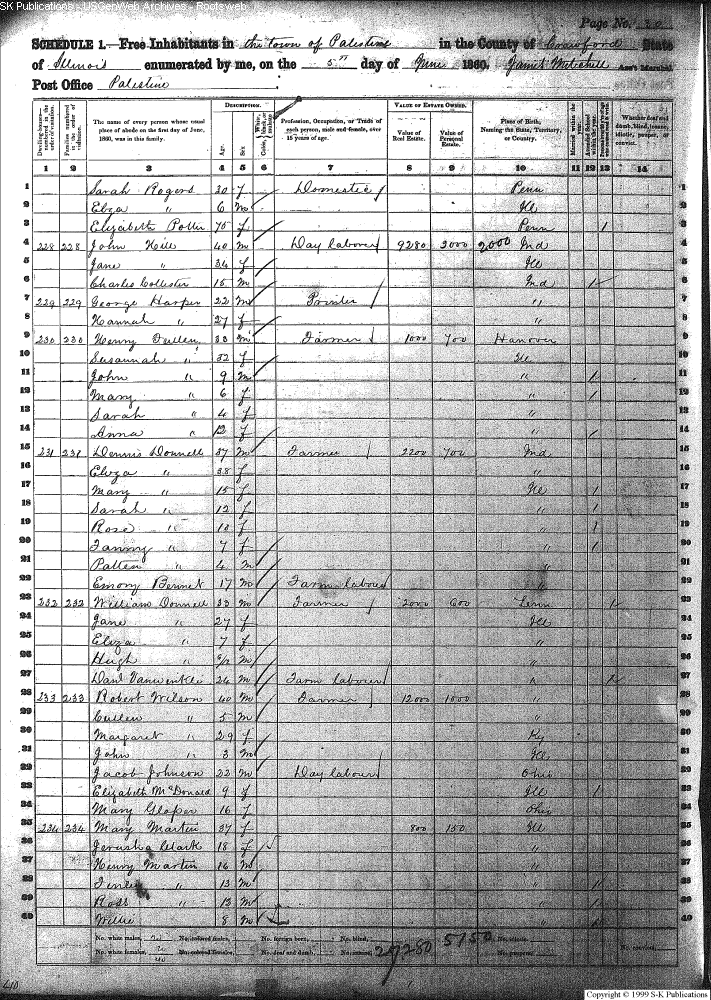 SK Publications - USGenWeb Archives - Rootsweb
Page No.
SCHEDULE 1.—Free Inhabitants in the town of Palestine in the County of Crawford State
of Illinois enumerated by me, on the 5th day of June 1860. Ass't Marshal
Post Office Palestine
Dwelling-houses—numbered in the order of visitation.
Families numbered in the order of visitation.
The name of every person whose usual place of abode on the first day of June, 1860, was in this family.
DESCRIPTION.
Age.
Sex.
Profession, Occupation, or Trade of each person, male and female, over 15 years of age.
VALUE OF ESTATE OWNED.
Value of Real Estate.
Value of Personal Estate.
Place of Birth, Naming the State, Territory, or Country.
Whether deaf and dumb, blind, insane, idiotic, pauper, or convict.
1 2 3 4 5 6 7 8 9 10 11 12 13 14
1 Sarah Rogers 30 f Domestic Penn 1
2 Eliza " 6 Ill 2
3 Elizabeth 75 f Penn 3
4 228 228 John Hill 40 m Day laborer 9280 3000 2000 Ind 4
5 Jane " 34 f Ill 5
6 Charles 15 m Ind 6
7 229 229 George Harper 22 m " 7
8 Hannah " 27 f " 8
9 230 230 Henry 33 m Farmer 1000 700 Hanover 9
10 Susannah " 32 f Ill 10
11 John " 9 m " 11
12 Mary " 6 f " 12
13 Sarah " 4 f " 13
14 Anna " 12 f " 14
15 231 231 Dennis Donnell 37 m Farmer 2200 700 Ind 15
16 Eliza " 38 f " 16
17 Mary " 15 f Ill 17
18 Sarah " 12 f " 18
19 Rose " 10 f 19
20 Fanny " 7 f " 20
21 Patten " 4 m " 21
22 Emory Bennet 17 m Farm labour 22
23 232 232 William Donnell 33 m Farmer 2000 600 23
24 Jane " 27 f Ill 24
25 Eliza " 7 f 25
26 Hugh " m " 26
27 Danl Vanwinkle 24 m Farm labour " 27
28 233 233 Robert Wilson 40 m Farmer 12000 1000 " 28
29 Cullen " 5 m " 29
30 Margaret " 29 f Ky 30
31 John " 3 m Ill 31
32 Jacob Johnson 22 m Day labour Ohio
33 Elizabeth McDonald 9 f Ill
34 Mary 16 f Ohio
35 234 234 Mary Martin 37 f 800 150 Ill 35
36 Jerusha Clark 18 f " 36
37 Henry Martin 16 m " 37
38 Finley " 13 m " 38
39 Ross " 13 m " 39
40 Willie 8 m " 40
No. white males, 20 No. colored males, No. foreign born, No. blind,
No. white females, 20 No. colored females, No. deaf and dumb, No. insane, 27280 5150 No. idiotic. No. paupers, No. convicts,
40
Copyright © 1999 S-K Publications